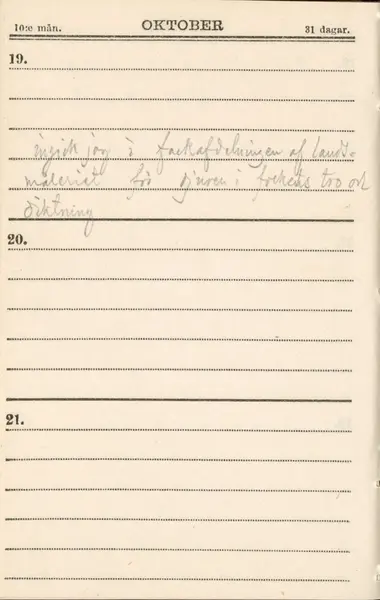 10:e mån. OKTOBER 31 dagar.
19.
ingick jag i fackafdelningen af lands-
materiat för djuren i folkens tro och
diktning
20.
21.